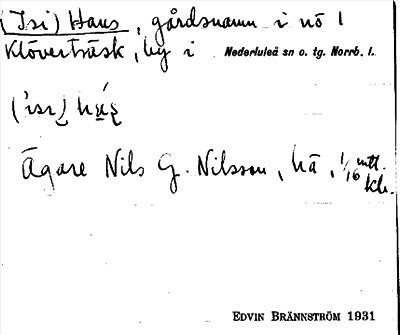 (Isi) Hans, gårdsnamn i nö 1
Klöverträsk, by i Nederluleå sn o. tg. Norrb. l.
Ägare Nils G. Nilsson, hä, 1/16 mtl.
EDVIN BRÄNNSTRÖM 1931